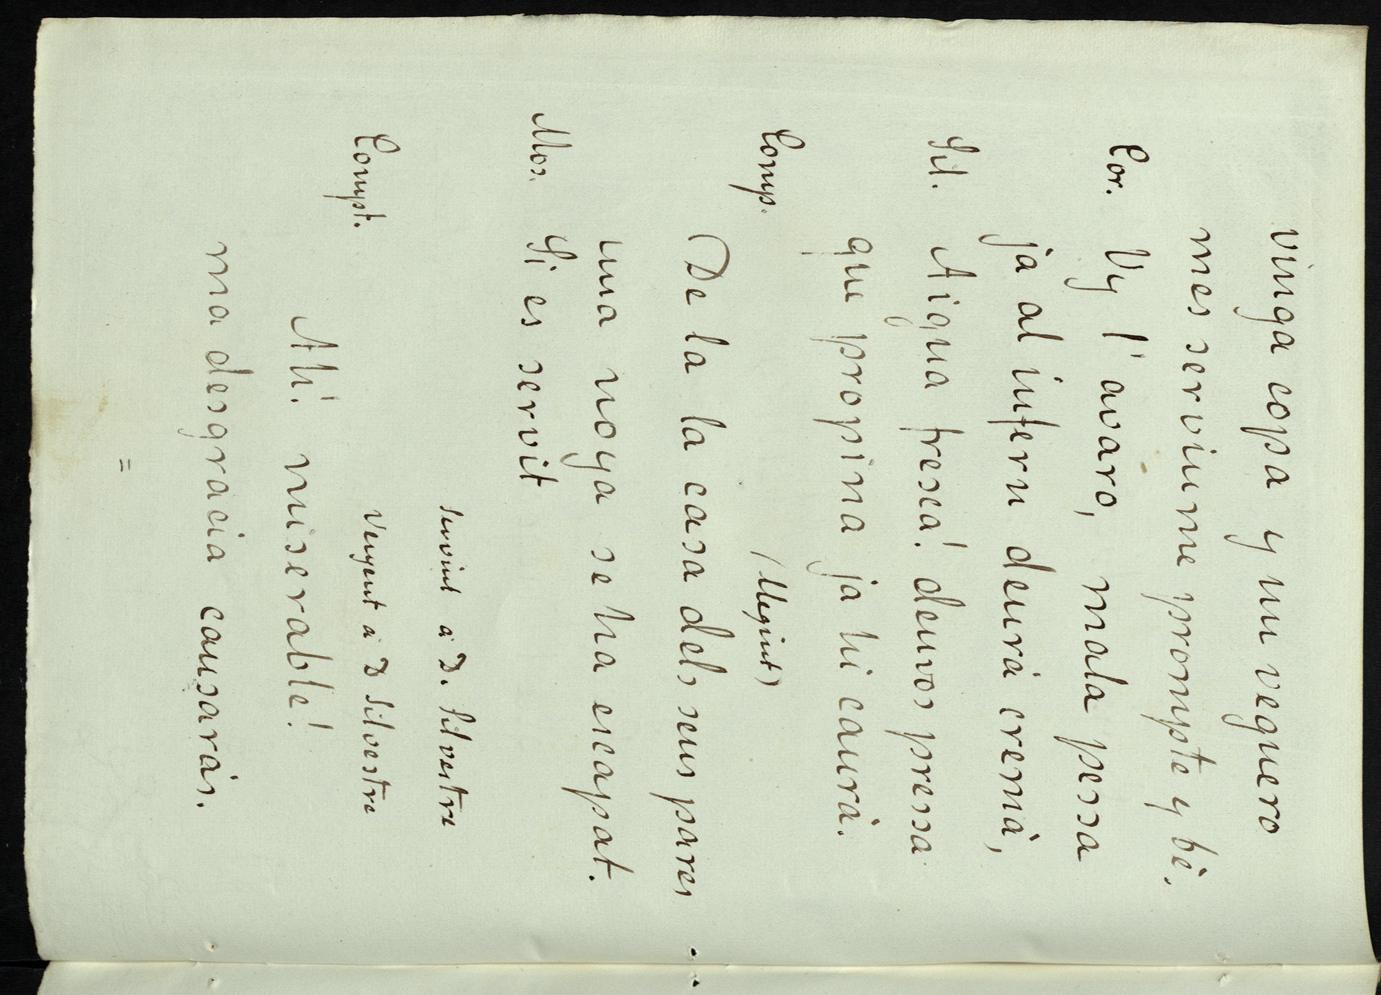 vinga copa y un veguero
mes serviume prompte y bè.
Cor. Vy l'avaro, mala pessa
ja al infern deurà cremà,
Sil. Aigua fresca! deuvos pressa
que propina ja hi caurà.
Comp. (Llegint)
(De la la casa dels seus pares
una noya se ha escapat.
Mos. Si es servit
servint à D. Silvestre
Compt. Vegent à D Silvestre
Ah! miserable!
ma desgracia causaràs.
=